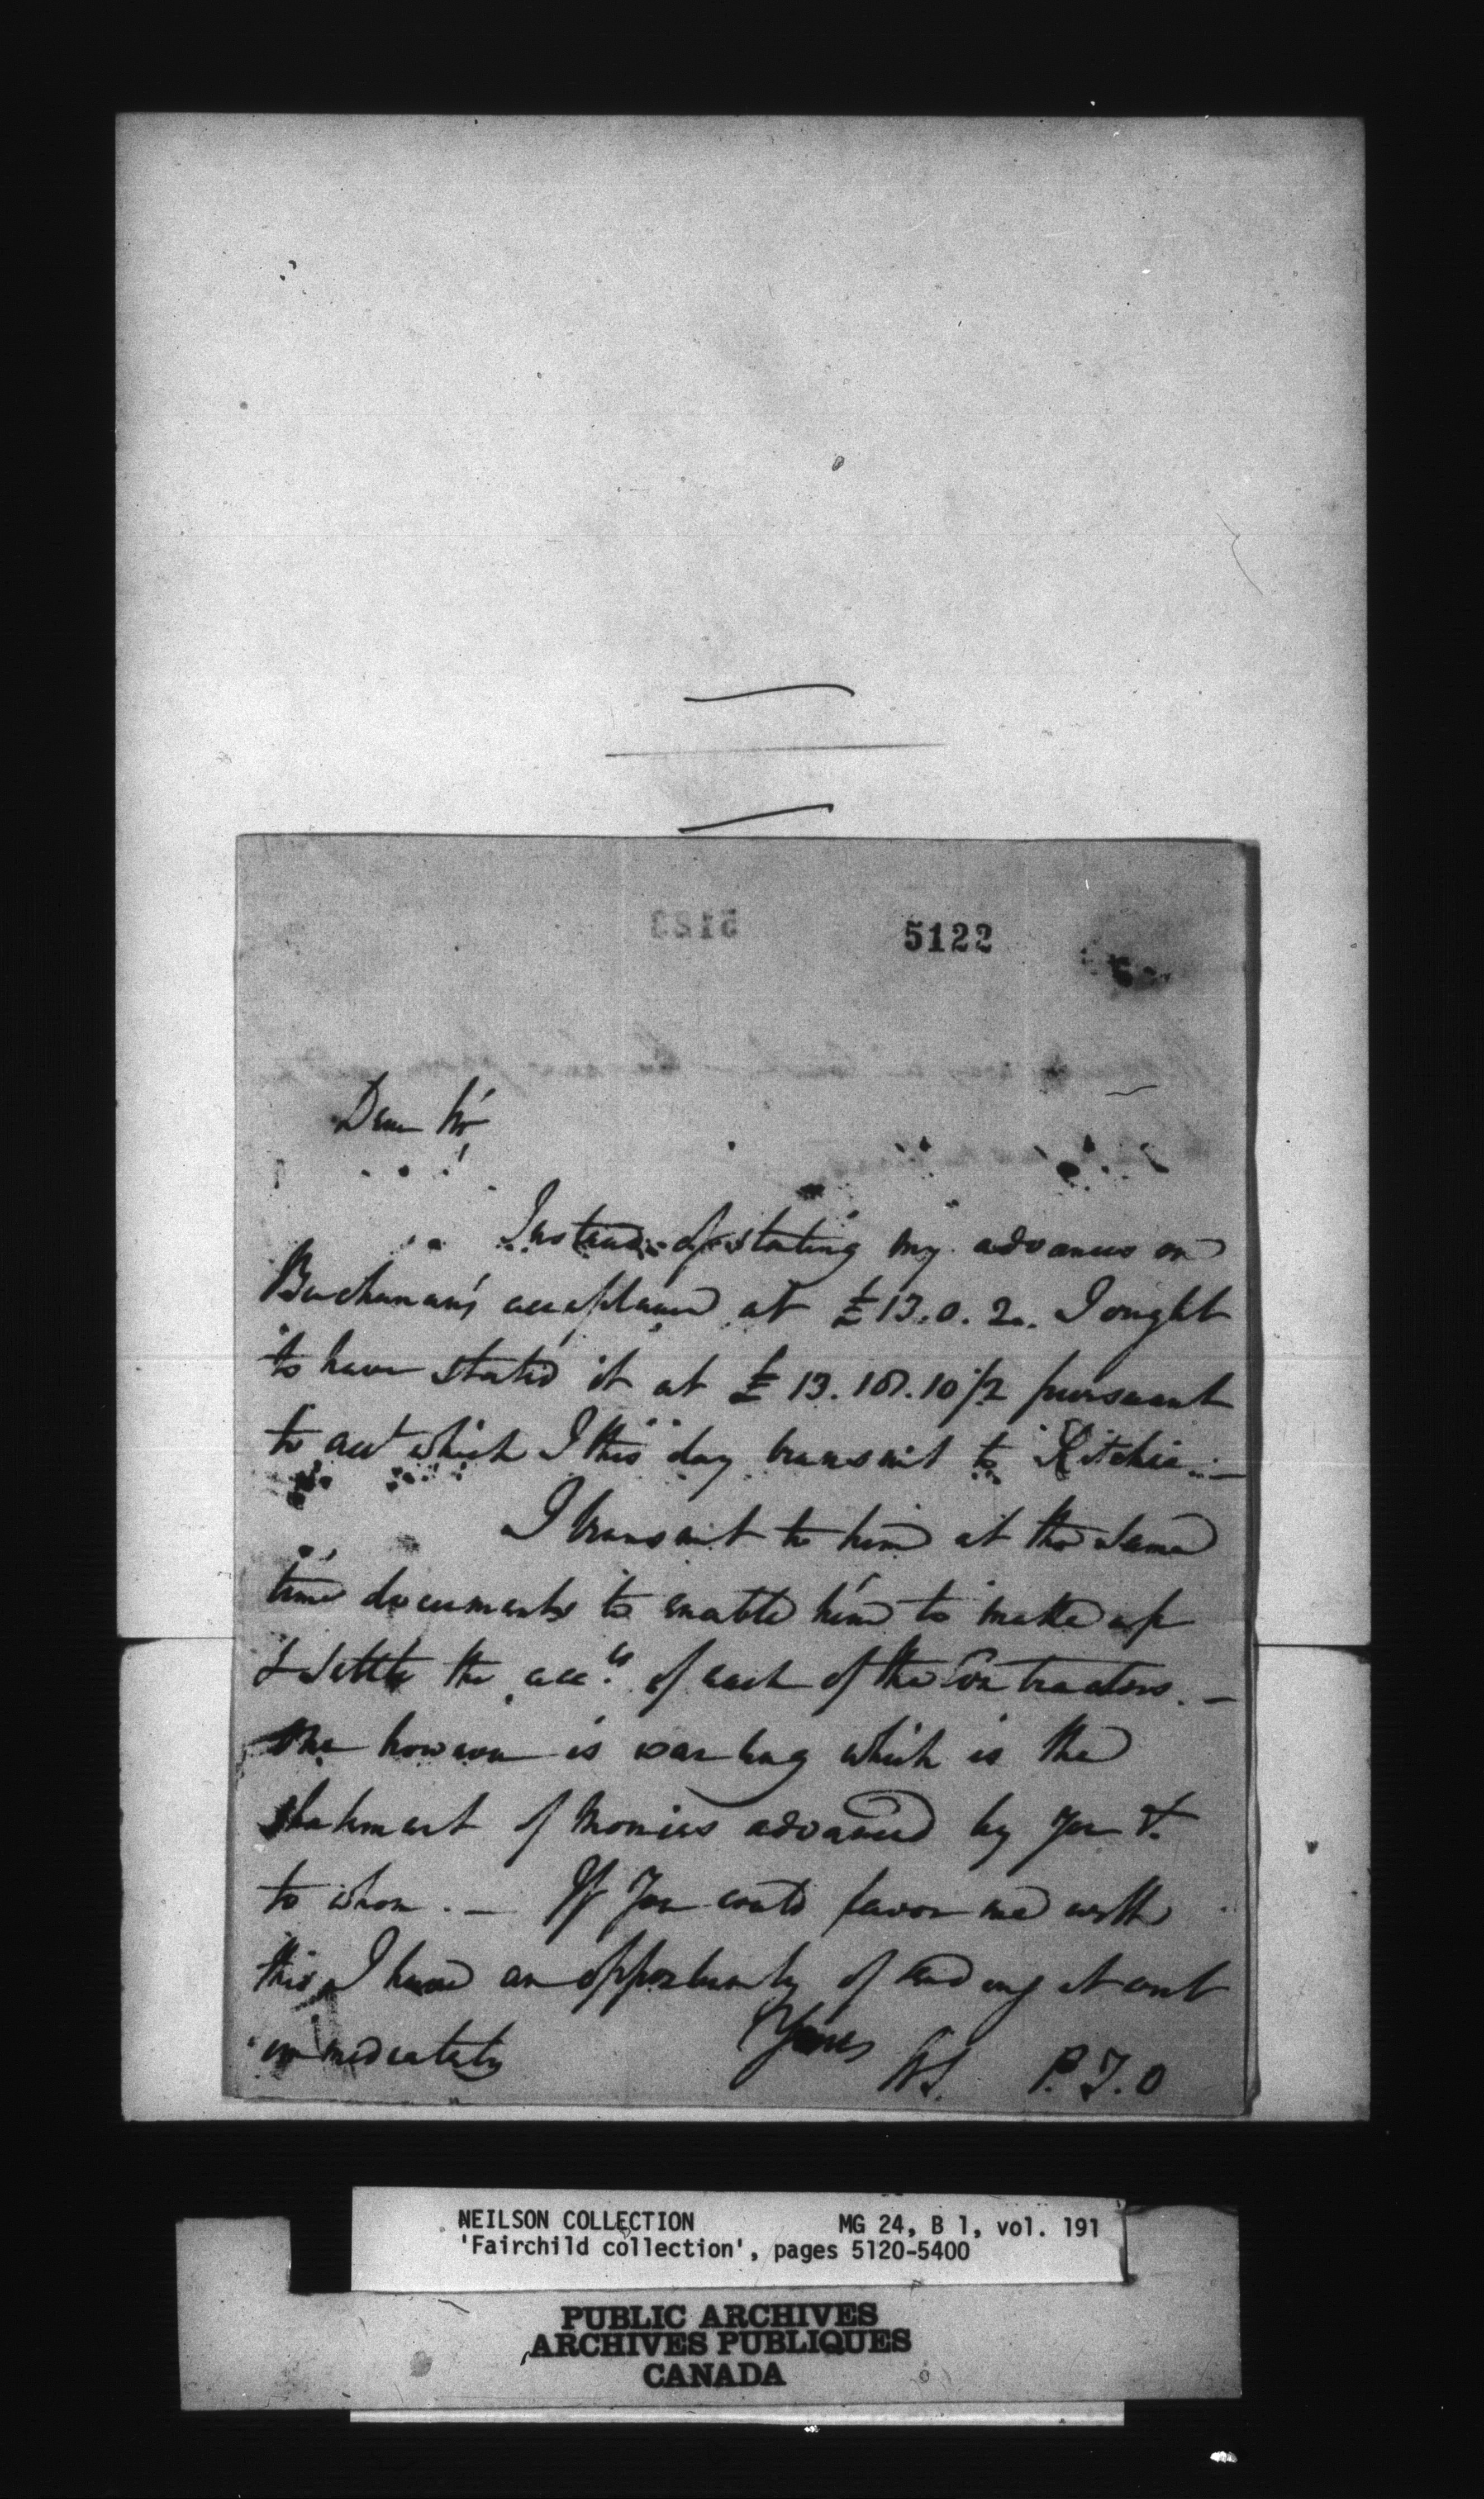 5122
Dear Sir
Instead of stating my advances on
Buchanan's acceptance at £13.0.2. I ought
to have stated it at £13.10.10½ pursuant
to acct which I this day transmit to Ritchie. —
I transmit to him at the same
time documents to enable him to make up
& settle the accts of each of the Contractors. —
One however is wanting which is the
statement of monies advanced by you &
to whom. — If you could favor me with
this I have an opportunity of sending it out
immediately
Yours
P.T.O
NEILSON COLLECTION MG 24, B 1, vol. 191
'Fairchild collection', pages 5120-5400
PUBLIC ARCHIVES
ARCHIVES PUBLIQUES
CANADA